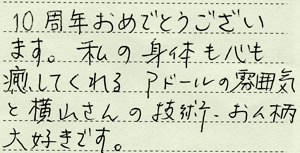 10周年おめでとうござい
ます。私の身体も心も
癒してくれる アドールの雰囲気
と横山さんの技術・お人柄
大好きです。